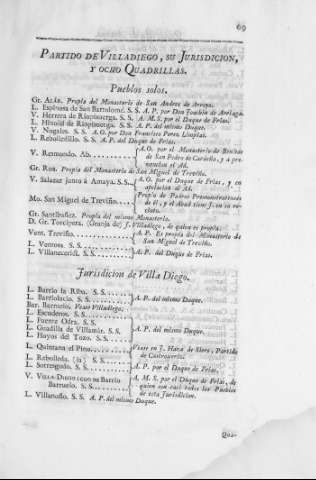 69
PARTIDO DE VILLADIEGO, SU JURISDICION,
Y OCHO QUADRILLAS.
Pueblos solos.
Gr. Acán. Propia del Monasterio de San Andres de Arroyo.
L. Espinosa de San Bartolomé. S. S. A. P. por Don Joachin de
V. Herrera de Riopisuerga. S. S. A. M. S. por el Duque de Frias.
L. Hinojal de Riopisuerga. S. S. A. P. del mismo Duque.
V. Nogales. S. S. A. O. por Don Francisco Perez
L. Rebolledillo. S. S. A. P. del Duque de Frias.
V. Resmondo. Ab. A. O. por el Monasterio de Benitos
de San Pedro de Cardeña, y a pre-
vencion el Ab.
Gr. Ron. Propia del Monasterio de San Miguel de Treviño.
V. Salazar junto á Amaya. S. S. A. O. por el Duque de Frias, y en
apelacion el Ad.
Mo. San Miguel de Treviño. Propio de Padres Premonstratenses
de él, y el Abad tiene J. en su re-
cinto.
Gr. Santibañez. Propia del mismo Monasterio.
D. Gr. Torcipera. (Granja de) J. Villadiego, de quien es propia.
Vent. Treviño. A. P. Es propia del Monasterio de
San Miguel de Treviño.
L. Ventosa. S. S.
L. Villanueva S. S. A. P. del Duque de Frias.
Jurisdicion de Villa Diego.
L. Barrio la Riba. S. S.
L. Barriolucio. S. S. A. P. del mismo Duque.
Bar. Barruelo. Vease Villadiego.
L. Escudenos. S. S.
L. Fuente Odra. S. S.
L. Guadilla de Villamár. S. S. A. P. del mismo Duque.
L. Hoyos del Tozo. S. S.
L. Quintana el Pino. Vease en J. Haza de Siero, Partido
de Castroxeriz.
L. Rebolleda. (la) S. S.
L. Sorresgudo. S. S. A. P. por el Duque de Frias.
V. VILLA-DIEGO con su Barrio
Barruelo. S. S. A. M. S. por el Duque de Frias, de
quien son casi todos los Pueblos
de esta Jurisdicion.
L. Villanoño. S. S. A. P. del mismo Duque.
Qua-